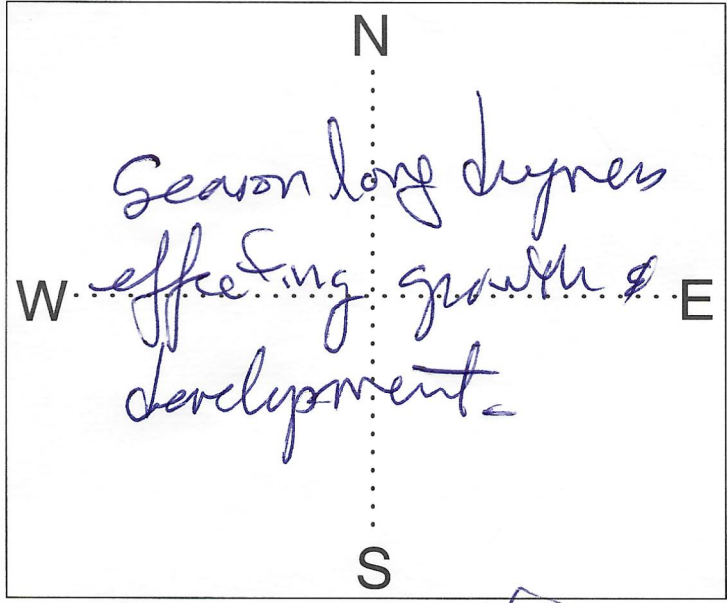 N
Season long dryness
effecting growth &
W E
development.
S